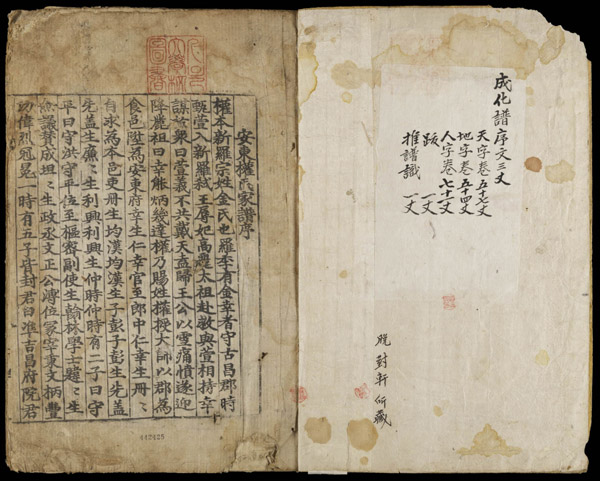 成化譜序文三丈
天字卷五十七丈
地字卷五十四丈
人字卷七十一丈
跋 一丈
推譜識 一丈
晩對軒所藏
安東權氏家譜序
權本新羅宗姓金氏也羅季有金幸者守古昌郡時
甄萱入新羅弑王辱妃高麗太祖赴救與萱相持幸
謀於衆曰萱義不共戴天盍歸王公以雪痛憤遂迎
降麗祖曰幸能炳幾達權乃賜姓權授大師以郡爲
食邑陞爲安東府幸生仁幸官至郎中仁幸生冊〻
自求爲本邑吏冊生均漢均漢生子彭子彭生先盖
先盖生廉〻生利興利興生仲時仲時有二子曰守
平曰守洪守平位至樞密副使生翰林學士韙〻生
僉議贊成㫜〻生政丞文正公溥位冡宰秉文柄豊
功偉烈冠冕一時有五子皆封君曰准吉昌府院君
442425